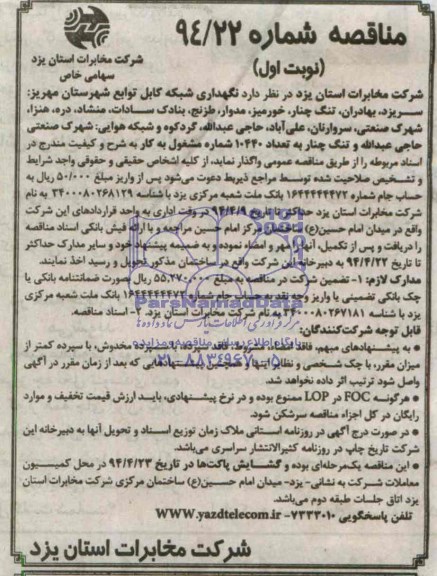 مناقصه شماره ۹۴/۲۲
(نوبت اول)
شرکت مخابرات استان یزد
سهامی خاص
شرکت مخابرات استان یزد در نظر دارد نگهداری شبکه کابل توابع شهرستان مهریز:
سریزد، بهادران، تنگ چنار، خورمیز، مدوار، طزنج، بنادک سادات، منشاد، دره، هنزا،
شهرک صنعتی، سروارتان، علی‌آباد، حاجی عبدالله، گردکوه و شبکه هوایی: شهرک صنعتی
حاجی عبدالله و تنگ چنار به تعداد ۱۰۴۴۰ شماره مشغول به کار به شرح و کیفیت مندرج در
اسناد مربوطه را از طریق مناقصه عمومی واگذار نماید، از کلیه اشخاص حقیقی و حقوقی واجد شرایط
و تشخیص صلاحیت شده توسط مراجع ذیربط دعوت می‌شود پس از واریز مبلغ ۵۰/۰۰۰ ریال به
حساب جام شماره ۱۶۴۴۴۴۴۴۷۲ بانک ملت شعبه مرکزی یزد با شناسه ۳۴۰۰۰۸۰۲۶۸۱۲۹ به نام
شرکت مخابرات استان یزد حداکثر تا تاریخ ۹۴/۴/۹ در وقت اداری به واحد قراردادهای این شرکت
واقع در میدان امام حسین(ع) ساختمان مرکز امام حسین مراجعه و با ارائه فیش بانکی اسناد مناقصه
را دریافت و پس از تکمیل، آنها را مهر و امضاء نموده و به ضمیمه پیشنهاد خود و سایر مدارک حداکثر
تا تاریخ ۹۴/۴/۲۲ به دبیرخانه این شرکت واقع در ساختمان مذکور تحویل و رسید اخذ نمایند.
مدارک لازم: ۱- تضمین شرکت در مناقصه به مبلغ ۵۵,۲۷۰,۰۰۰ ریال بصورت ضمانتنامه بانکی یا
چک بانکی تضمینی یا واریز وجه نقد به حساب جام شماره ۱۶۴۴۴۴۴۴۷۲ بانک ملت شعبه مرکزی
یزد با شناسه ۳۴۰۰۰۸۰۲۶۷۱۸۱ به نام شرکت مخابرات استان یزد. ۲- اسناد مناقصه.
قابل توجه شرکت‌کنندگان:
* به پیشنهادهای مبهم، فاقد امضاء، مشروط، فاقد سپرده، با سپرده مخدوش، با سپرده کمتر از
میزان مقرر، با چک شخصی و نظایر اینها و همچنین پیشنهادهایی که بعد از زمان مقرر در آگهی
واصل شود ترتیب اثر داده نخواهد شد.
* هرگونه FOC در LOP ممنوع بوده و در نرخ پیشنهادی، باید ارزش قیمت تخفیف و موارد
رایگان در کل اجزاء مناقصه سرشکن شود.
* در صورت درج آگهی در روزنامه استانی ملاک زمان توزیع اسناد و تحویل آنها به دبیرخانه این
شرکت تاریخ چاپ در روزنامه کثیرالانتشار سراسری می‌باشد.
* این مناقصه یک‌مرحله‌ای بوده و گشایش پاکت‌ها در تاریخ ۹۴/۴/۲۳ در محل کمیسیون
معاملات شرکت به نشانی- یزد- میدان امام حسین(ع) ساختمان مرکزی شرکت مخابرات استان
یزد اتاق جلسات طبقه دوم می‌باشد.
تلفن پاسخگویی ۷۲۳۳۰۱۰- www.yazdtelecom.ir
شرکت مخابرات استان یزد
ParsNamadData